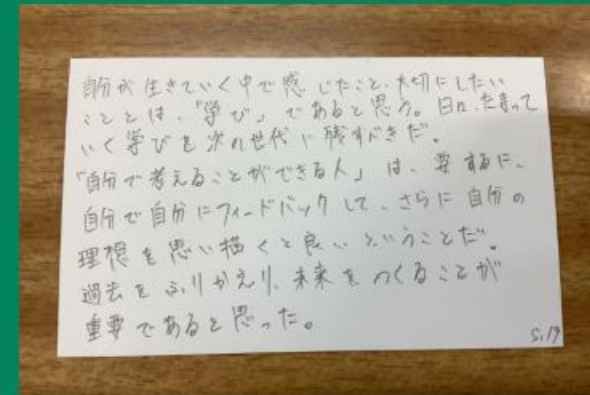 自分が生きていく中で感じたこと、大切にしたい
こととは、「学び」であると思う。日々、たまって
いく学びを次の世代に残すべきだ。
「自分で考えることができる人」は、要するに、
自分で自分にフィードバックして、さらに自分の
理想を思い描くと良いということだ。
過去をふりかえり、未来をつくることが
重要であると思った。
5.19